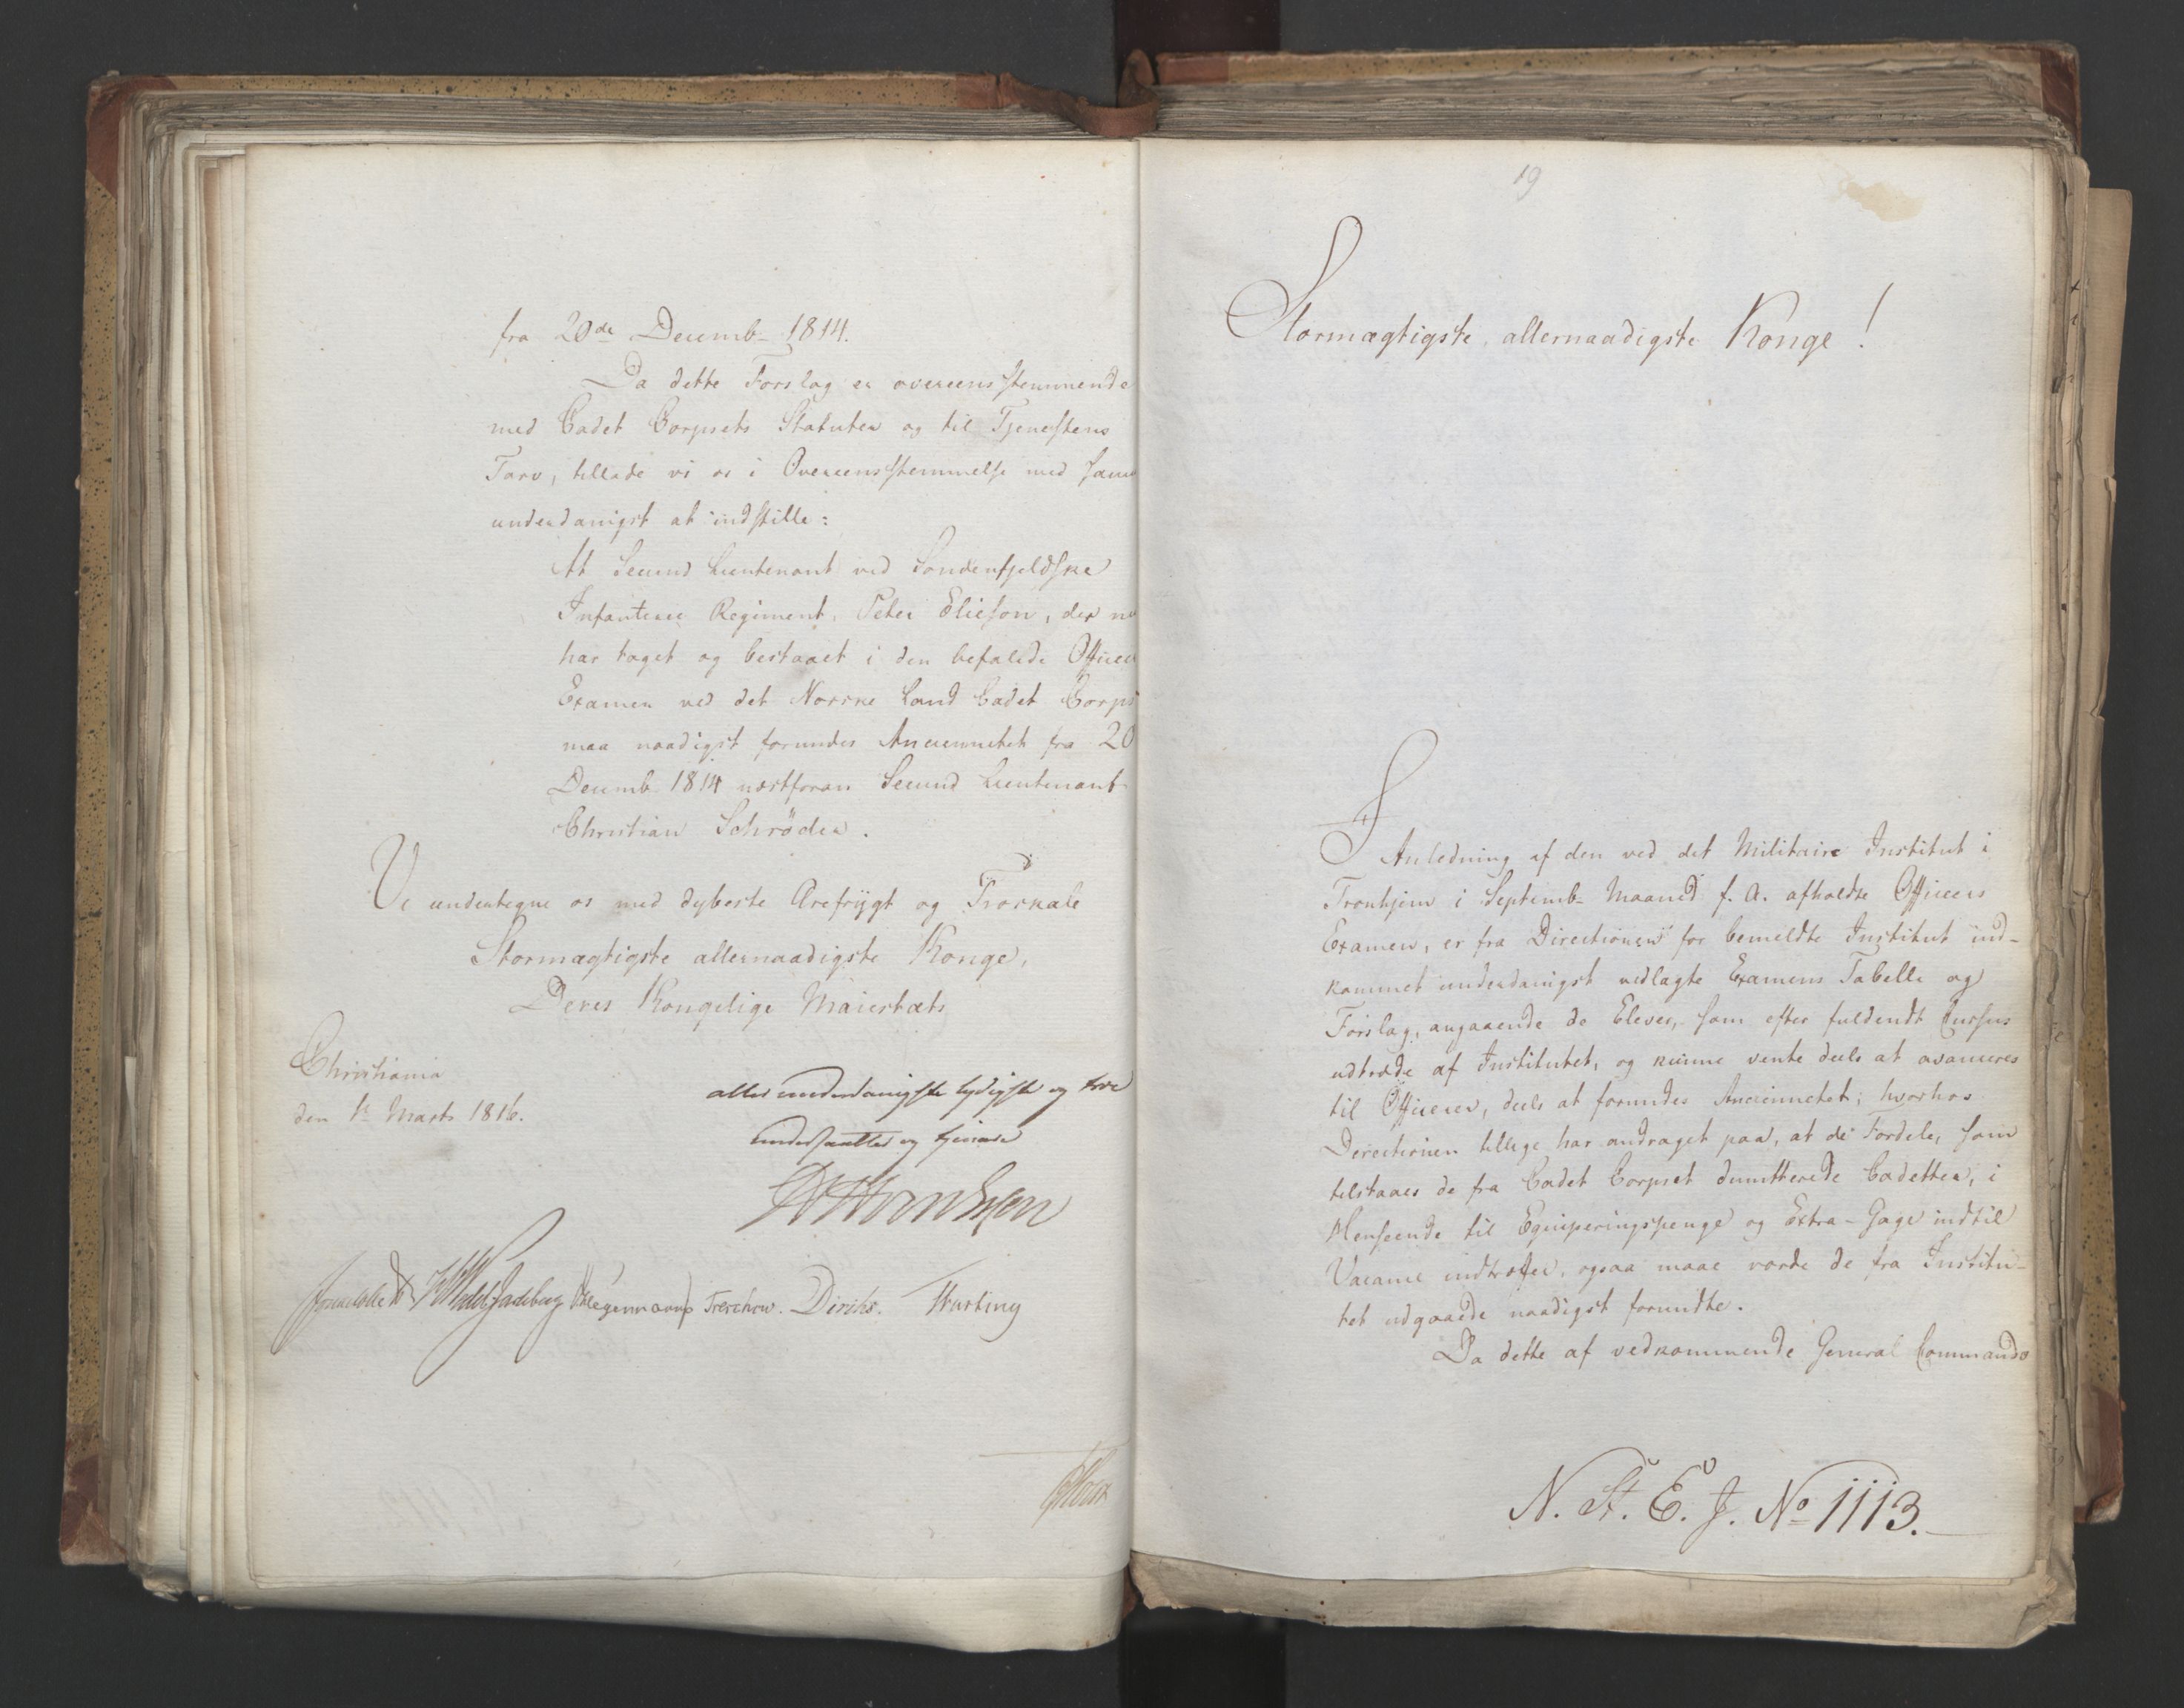 fra 20de Decemb- 1814.
Da dette Forslag er overeensstemmende
med Cadet Corpsets Statuter og til Tjenestens
Tarv, tillade vi os i Overeensstemmelse med
underdanigst at indstille:
At Second Lieutenant ved Søndenfjeldske
Infanterie Regiment, Peter Elieson, der nu
har taget og bestaaet i den befalede Officer
Examen ved det Norske Land Cadet Corps
maa naadigst forundes Anciennetet fra 20
Decemb- 1814 næstforan Second Lieutenant
Christian Schrøder.
Vi undertegne os med dybeste Ærefrygt og Troskab
Stormægtigste allernaadigste Konge,
Deres Kongelige Maiestæts
Christiania
den 1e Marts 1816.
allerunderdanigste lydigste og troe
undersaatter og tjenere
Hegermann Treschow. Diriks.
19
Stormægtigste, allernaadigste Konge!
I
Anledning af den ved det Militaire Institut i
Tronhjem i Septemb- Maaned f. A. afholdte Officers
Examen, er fra Directionen for bemeldte Institut ind-
kommet underdanigst vedlagte Examens Tabelle og
Forslag, angaaende de Elever, som efter fuldendt Cursus
udtræde af Institutet, og kunne vente deels at avanceres
til Officerer, deels at forundes Anciennetet; hvorhos
Directionen tillige har andraget paa, at de Fordele, som
tilstaaes de fra Cadet Corpset dimitterede Cadetter, i
Henseende til Equiperingspenge og Extra-Gage indtil
Vacance indtræffer, ogsaa maae vorde de fra Institu-
tet udgaaede naadigst forundte.
Da dette af vedkommende General Commando
N. St. E. J. No 1113.